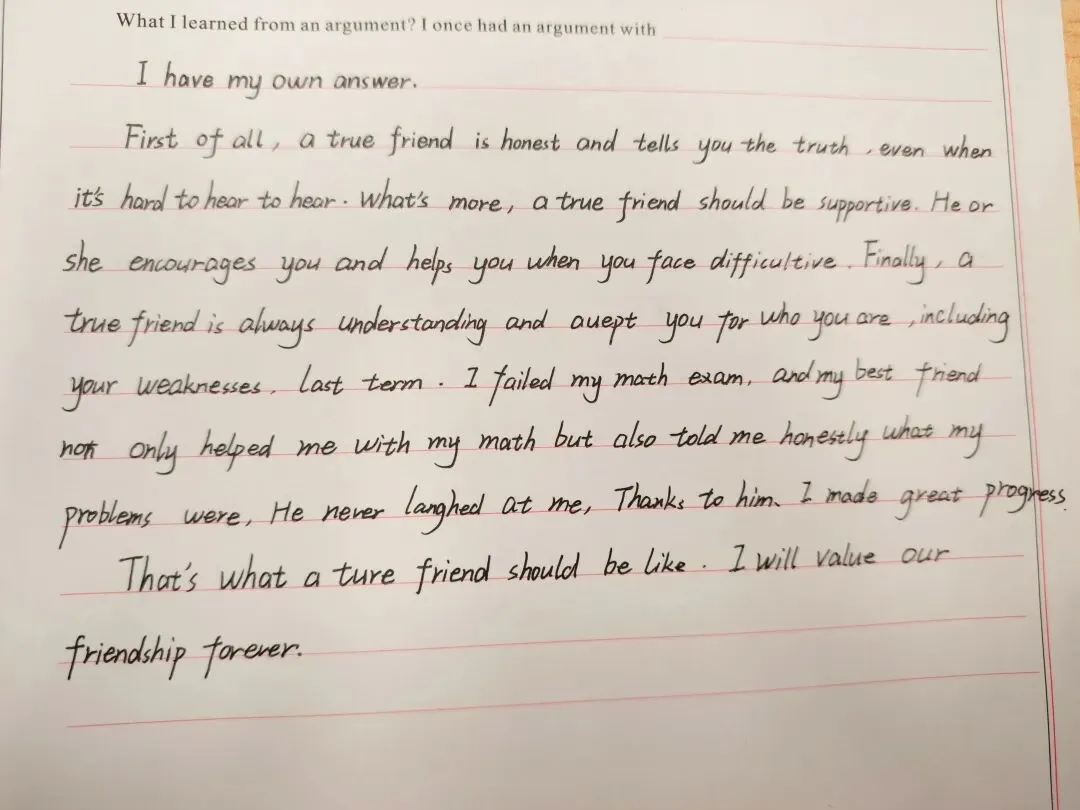 What I learned from an argument? I once had an argument with
I have my own answer.
First of all, a true friend is honest and tells you the truth, even when
it's hard to hear to hear. What's more, a true friend should be supportive. He or
she encourages you and helps you when you face difficultive. Finally, a
true friend is always understanding and auept you for who you are, including
your weaknesses. last term. I failed my math exam, and my best friend
not only helped me with my math but also told me honestly what my
problems were, He never langhed at me, Thanks to him. I made great progress.
That's what a ture friend should be like. I will value our
friendship forever.